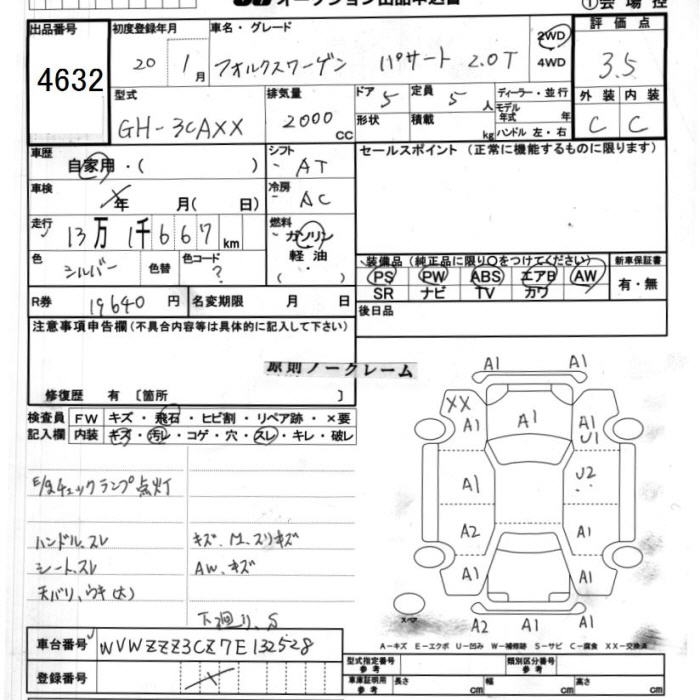 オークション出品申込書
①会場控
出品番号 初度登録年月 車名・グレード 評価点
4632 20 1月 フォルクスワーゲン パサート 2.0T 2WD 4WD 3.5
型式 排気量 ドア 5 定員 5人 ディーラー・並行 外装 内装
GH-3CAXX 2000 cc 形状 積載 kg モデル年式 年 ハンドル 左・右 C C
車歴 自家用・( ) シフト AT セールスポイント (正常に機能するものに限ります)
車検 年 月( 日) 冷房 AC
走行 13万1千667km 燃料 ガソリン 軽油 ・( )
色 シルバー 色替 色コード ? 装備品(純正品に限り○をつけてください) 新車保証書
PS PW ABS エアB AW 有・無
SR ナビ TV カワ
R券 19640円 名変期限 月 日 後日品
注意事項申告欄(不具合内容等は具体的に記入して下さい)
原則ノークレーム
修復歴 有〔箇所 〕
検査員 FW キズ・飛石・ヒビ割・リペア跡・×要
記入欄 内装 キズ・汚レ・コゲ・穴・スレ・キレ・破レ
A1 A1
XX A1 A1 A1 U1
A1 U2
A2 A1
A1 A1 A1
A2 A1
E/gチェックランプ点灯
ハンドル、スレ キズ、M、スリキズ
シート、スレ AW、キズ
天バリ、ウキ(大)
下廻り、S
スペア
A－キズ E－エクボ U－凹み W－補修跡 S－サビ C－腐食 XX－交換済
車台番号 WVWZZZ3CZ7E132528
型式指定番号 参考 類別区分番号 参考
登録番号
車庫証明用 参考 長さ cm 幅 cm 高さ cm